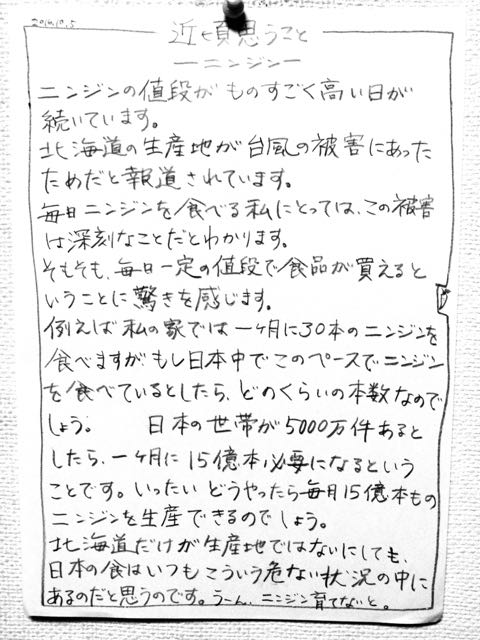 2016.10.5
近頃思うこと
ーニンジンー
ニンジンの値段がものすごく高い日が
続いています。
北海道の生産地が台風の被害にあった
ためだと報道されています。
毎日ニンジンを食べる私にとっては、この被害
は深刻なことだとわかります。
そもそも、毎日一定の値段で食品が買えると
いうことに驚きを感じます。
例えば私の家では一ヶ月に30本のニンジンを
食べますが、もし日本中でこのペースでニンジン
を食べているとしたら、どのくらいの本数なので
しょう。 日本の世帯が5000万件あると
したら、一ヶ月に15億本必要になるという
ことです。いったいどうやったら毎月15億本もの
ニンジンを生産できるのでしょう。
北海道だけが生産地ではないにしても、
日本の食はいつもこういう危ない状況の中に
あるのだと思うのです。うーん、ニンジン育てないと。